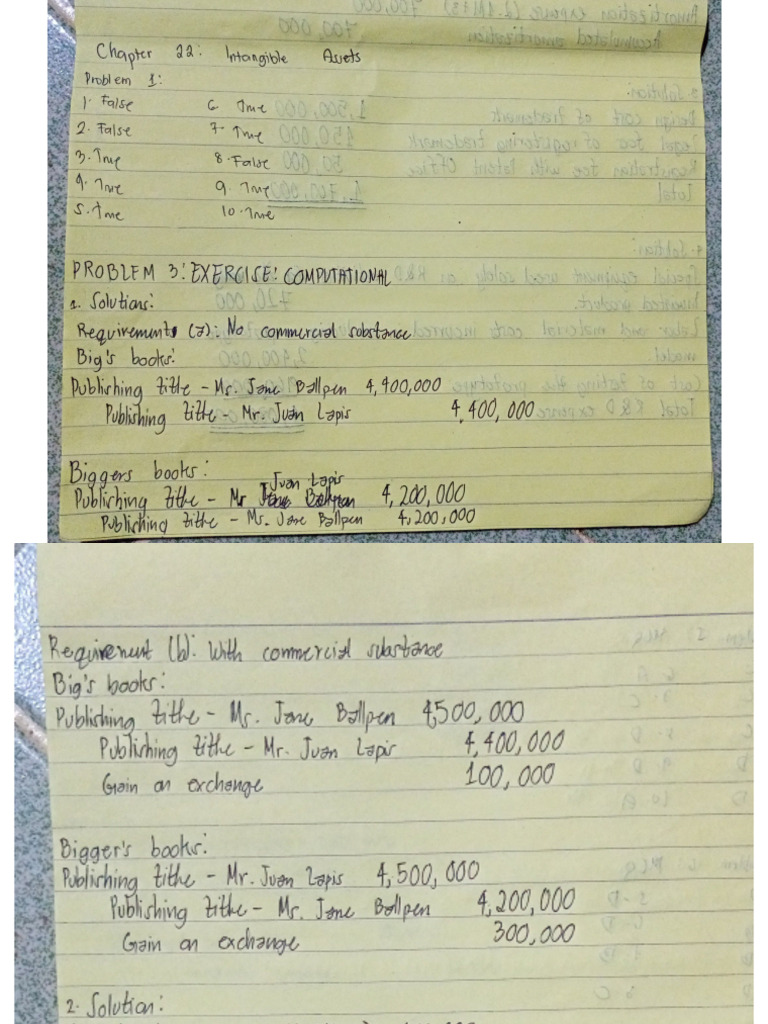 Chapter 22: Intangible Assets
Problem 1:
1. False 6. True
2. False 7. True
3. True 8. False
4. True 9. True
5. True 10. True
PROBLEM 3: EXERCISE: COMPUTATIONAL
1. Solutions:
Requirements (a): No commercial substance
Big's books:
Publishing title - Ms. Jane Ballpen 4,400,000
Publishing title - Mr. Juan Lapis 4,400,000
Biggers books:
Juan Lapis
Publishing title - Mr 4,200,000
Publishing title - Ms. Jane Ballpen 4,200,000
Requirement (b): With commercial substance
Big's books:
Publishing title - Ms. Jane Ballpen 4,500,000
Publishing title - Mr. Juan Lapis 4,400,000
Gain on exchange 100,000
Bigger's books:
Publishing title - Mr. Juan Lapis 4,500,000
Publishing title - Ms. Jane Ballpen 4,200,000
Gain on exchange 300,000
2. Solution: